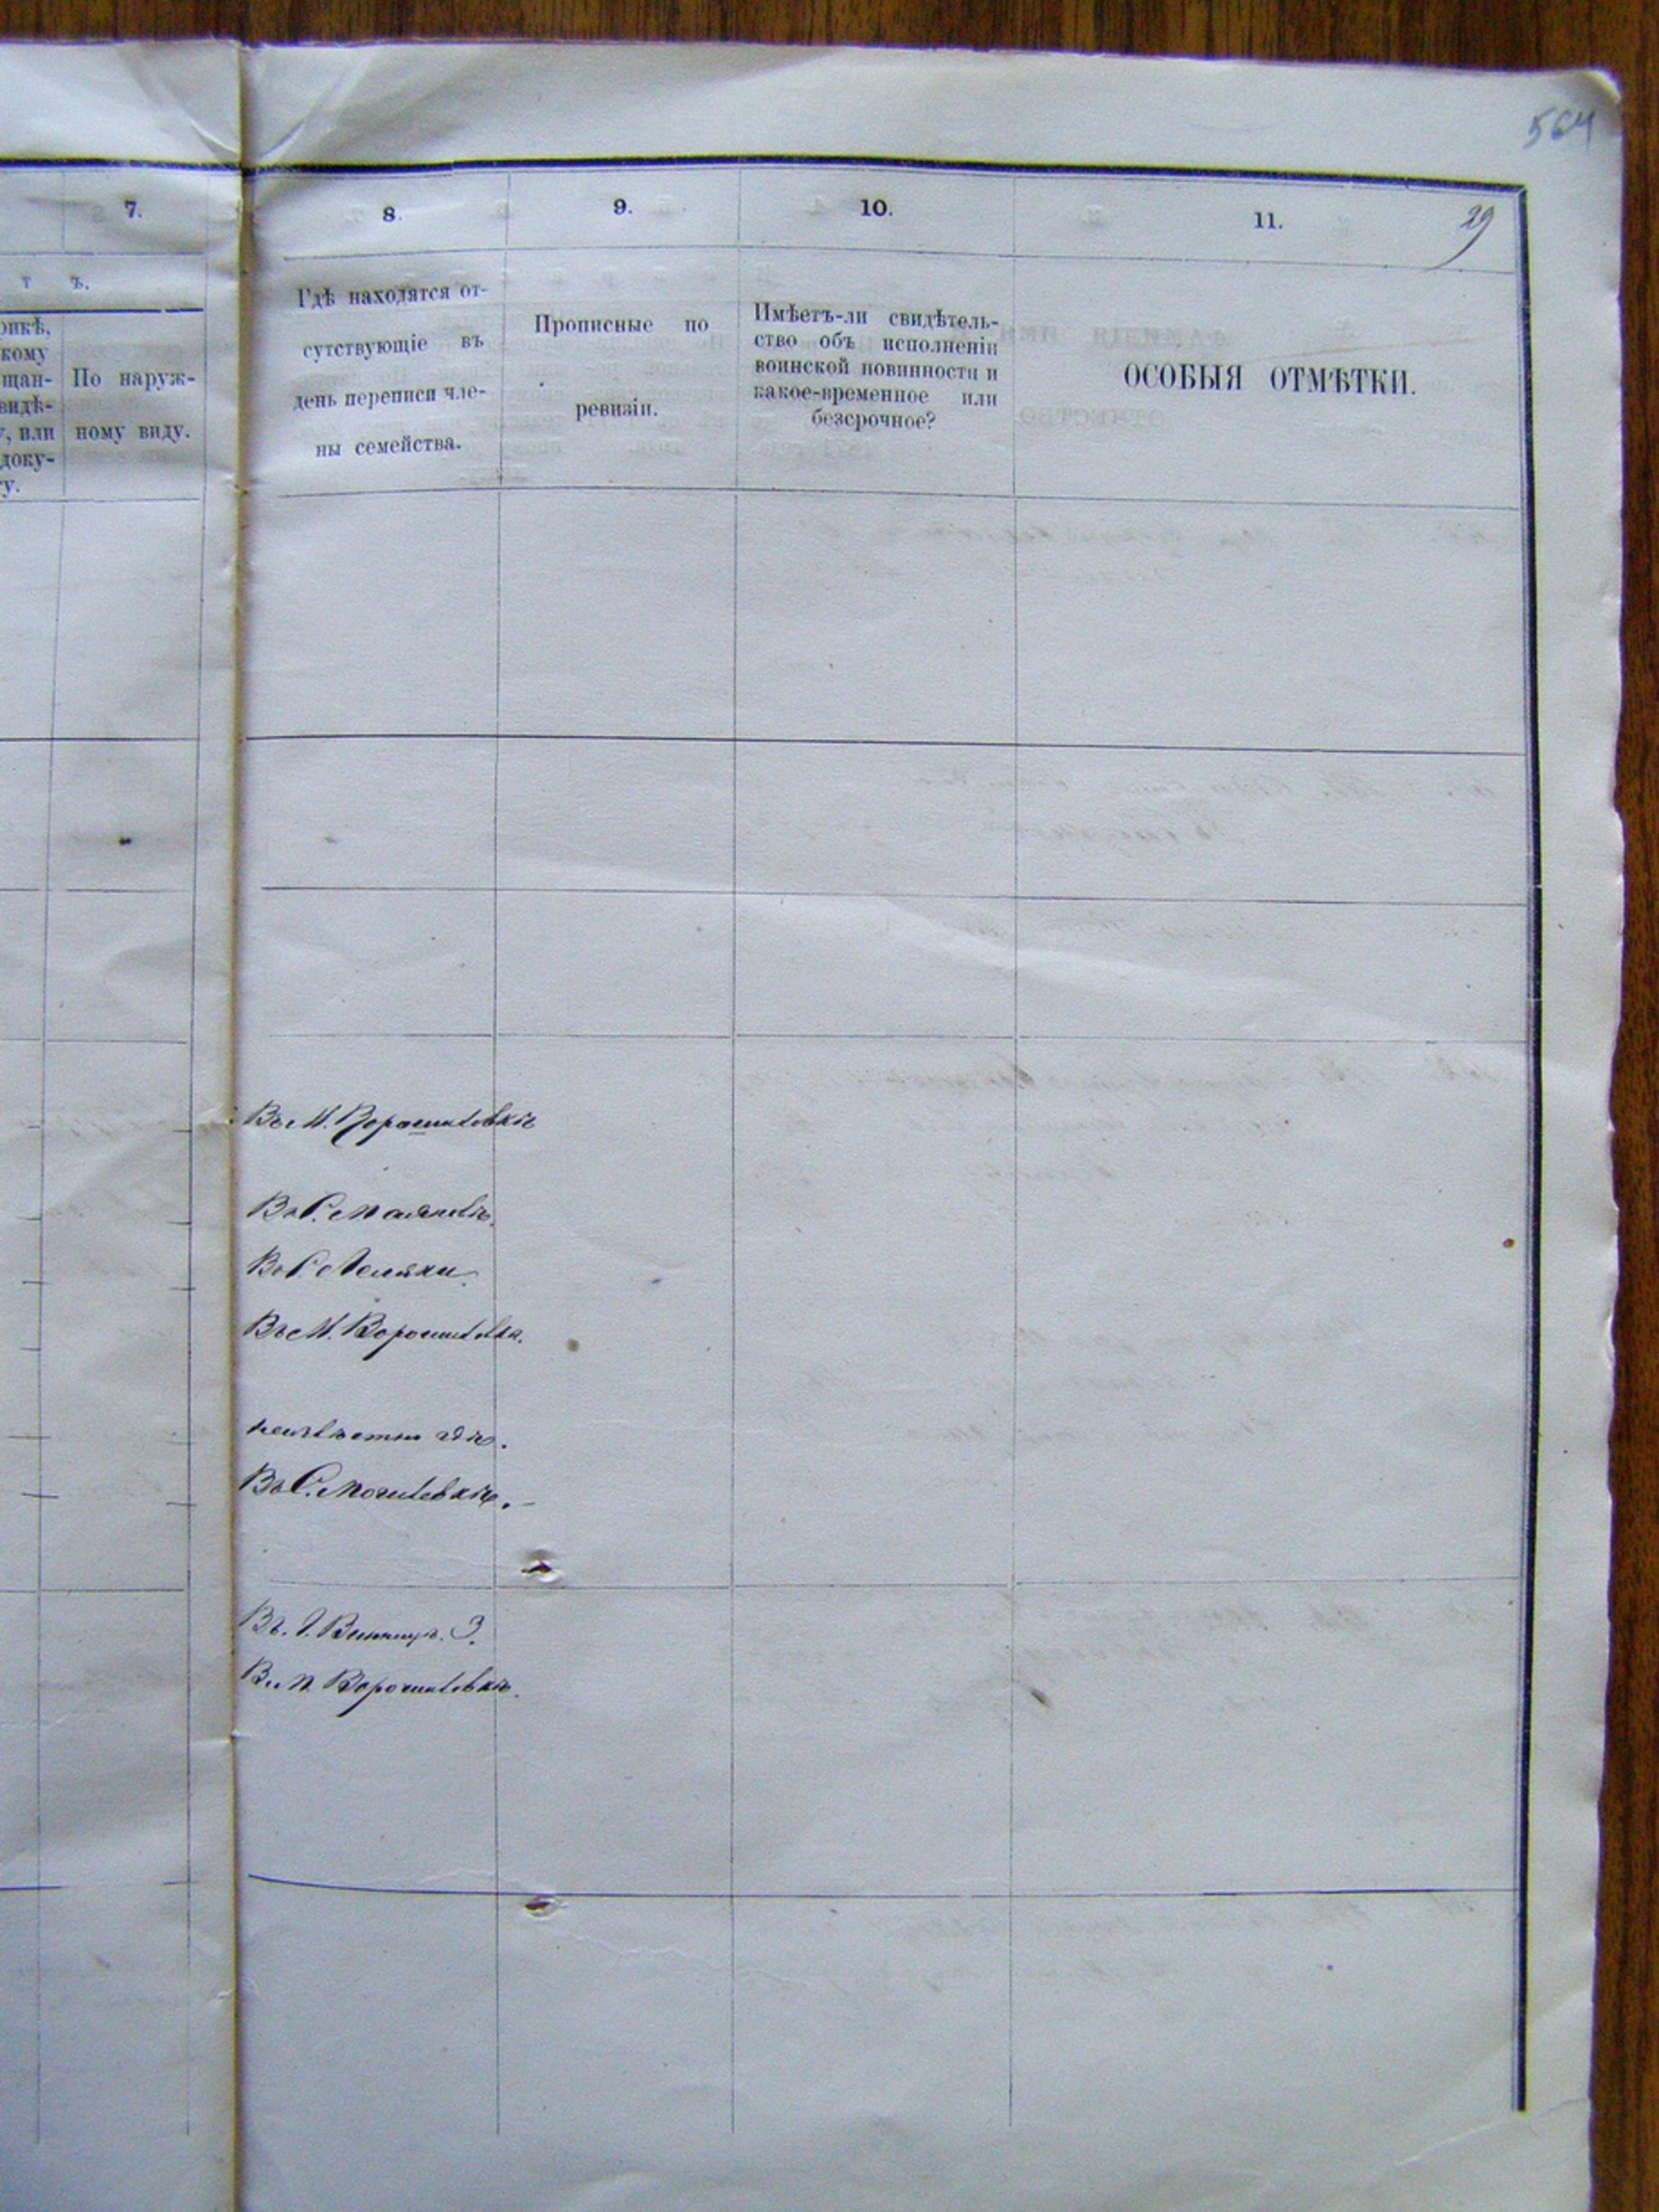 564
29
7.
8.
9.
10.
11.
т ъ.
рикѣ,
кому
щан-
видѣ-
у, или
доку-
ту.
По наруж-
ному виду.
Гдѣ находятся от-
сутствующіе въ
день переписи чле-
ны семейства.
Прописные по
ревизіи.
Имѣетъ-ли свидѣтель-
ство объ исполненіи
воинской повинности и
какое-временное или
безсрочное?
ОСОБЫЯ ОТМѢТКИ.
Въ М. Ворошиловкѣ
Въ С.
Въ С.
Въ М. Ворошиловкѣ.
неизвѣстно гдѣ.
Въ С. Могилевкѣ.
Въ. Г. Винницѣ.
Въ М. Ворошиловкѣ.